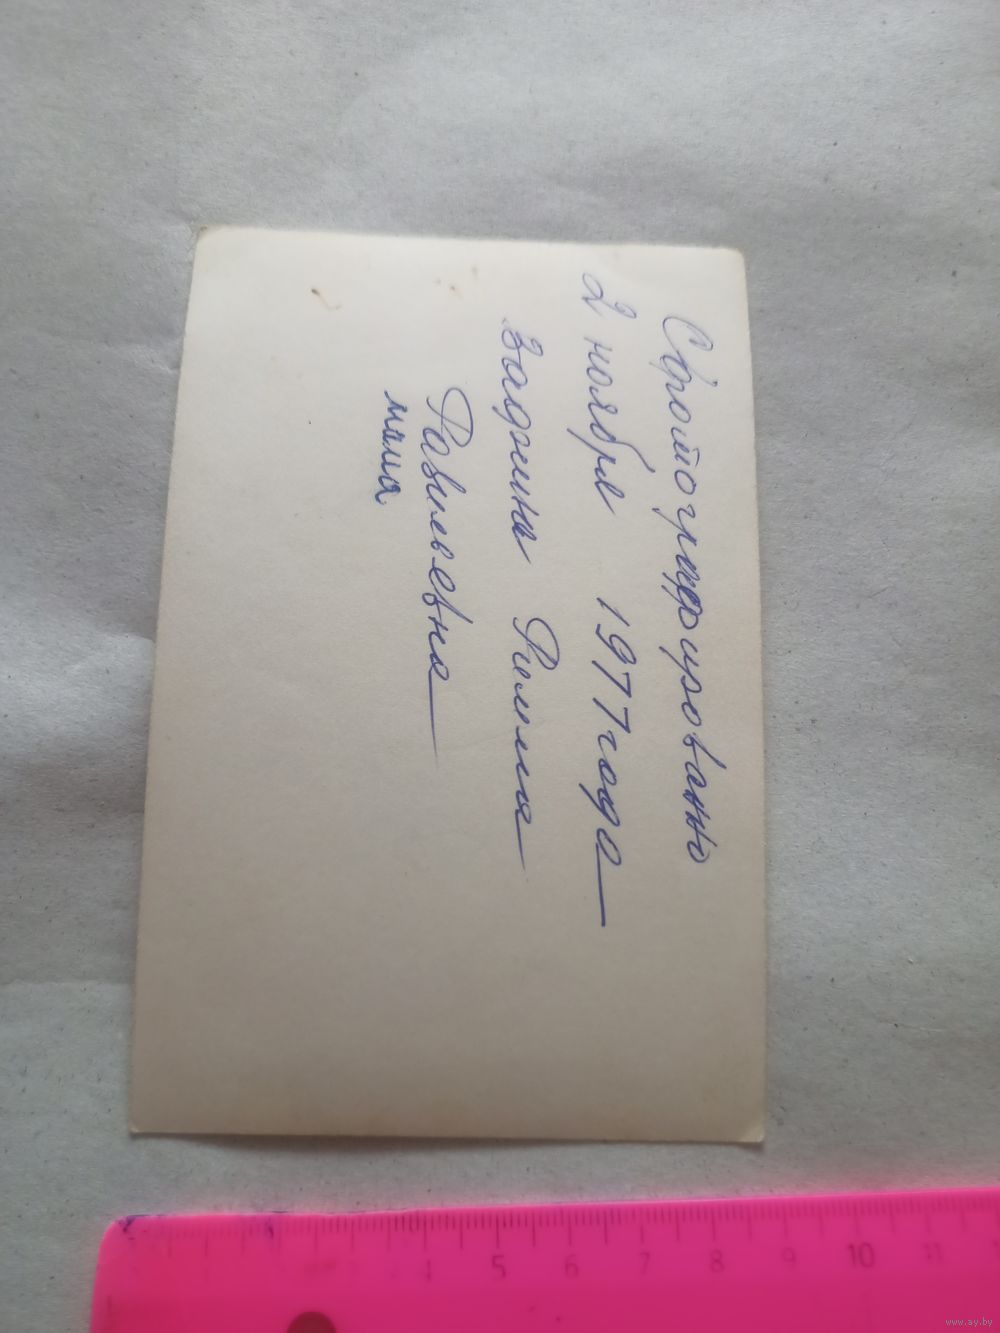 Сфотографировано
2 ноября 1977 года
Римма
Равильевна
мама
4 5 6 7 8 9 10 11
www.ay.by